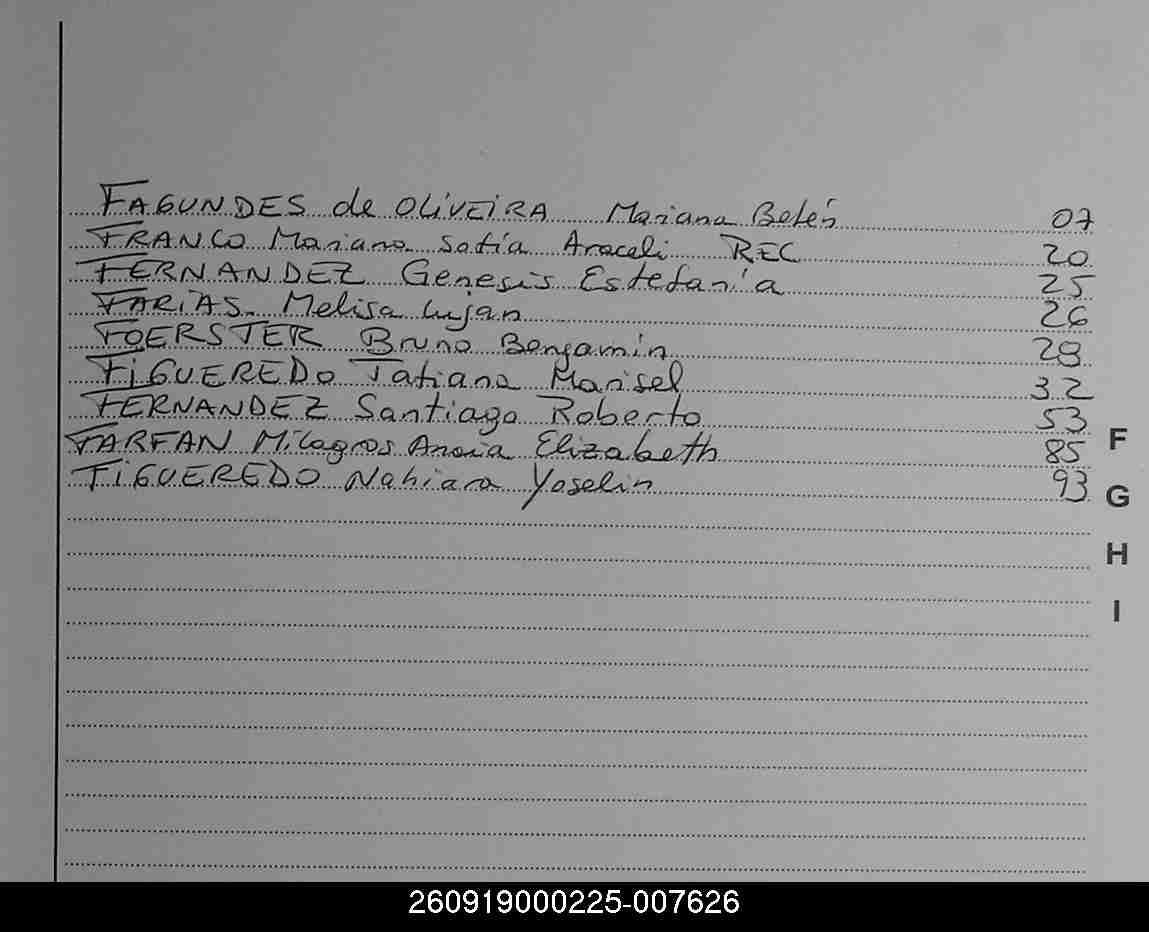 FAGUNDES de OLiVEiRA Mariana Belén 07
FRANCO Mariana Sofía Araceli REC 20
FERNANDEZ Genesis Estefanía 25
FARiAS Melisa Lujan 26
FOERSTER Bruno Benjamín 28
FiGUEREDO Tatiana Marisel 32
FERNANDEZ Santiago Roberto 53
FARFAN Milagros Elizabeth 85
FiGUEREDO Nahiara Yoselin 93
F
G
H
I
260919000225-007626